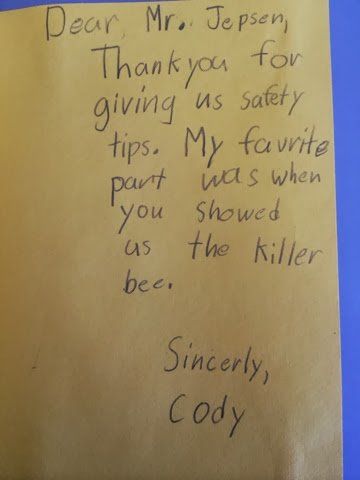 Dear, Mr. Jepsen,
Thank you for
giving us safety
tips. My favrite
part was when
you showed
us the killer
bee.
Sincerly,
Cody